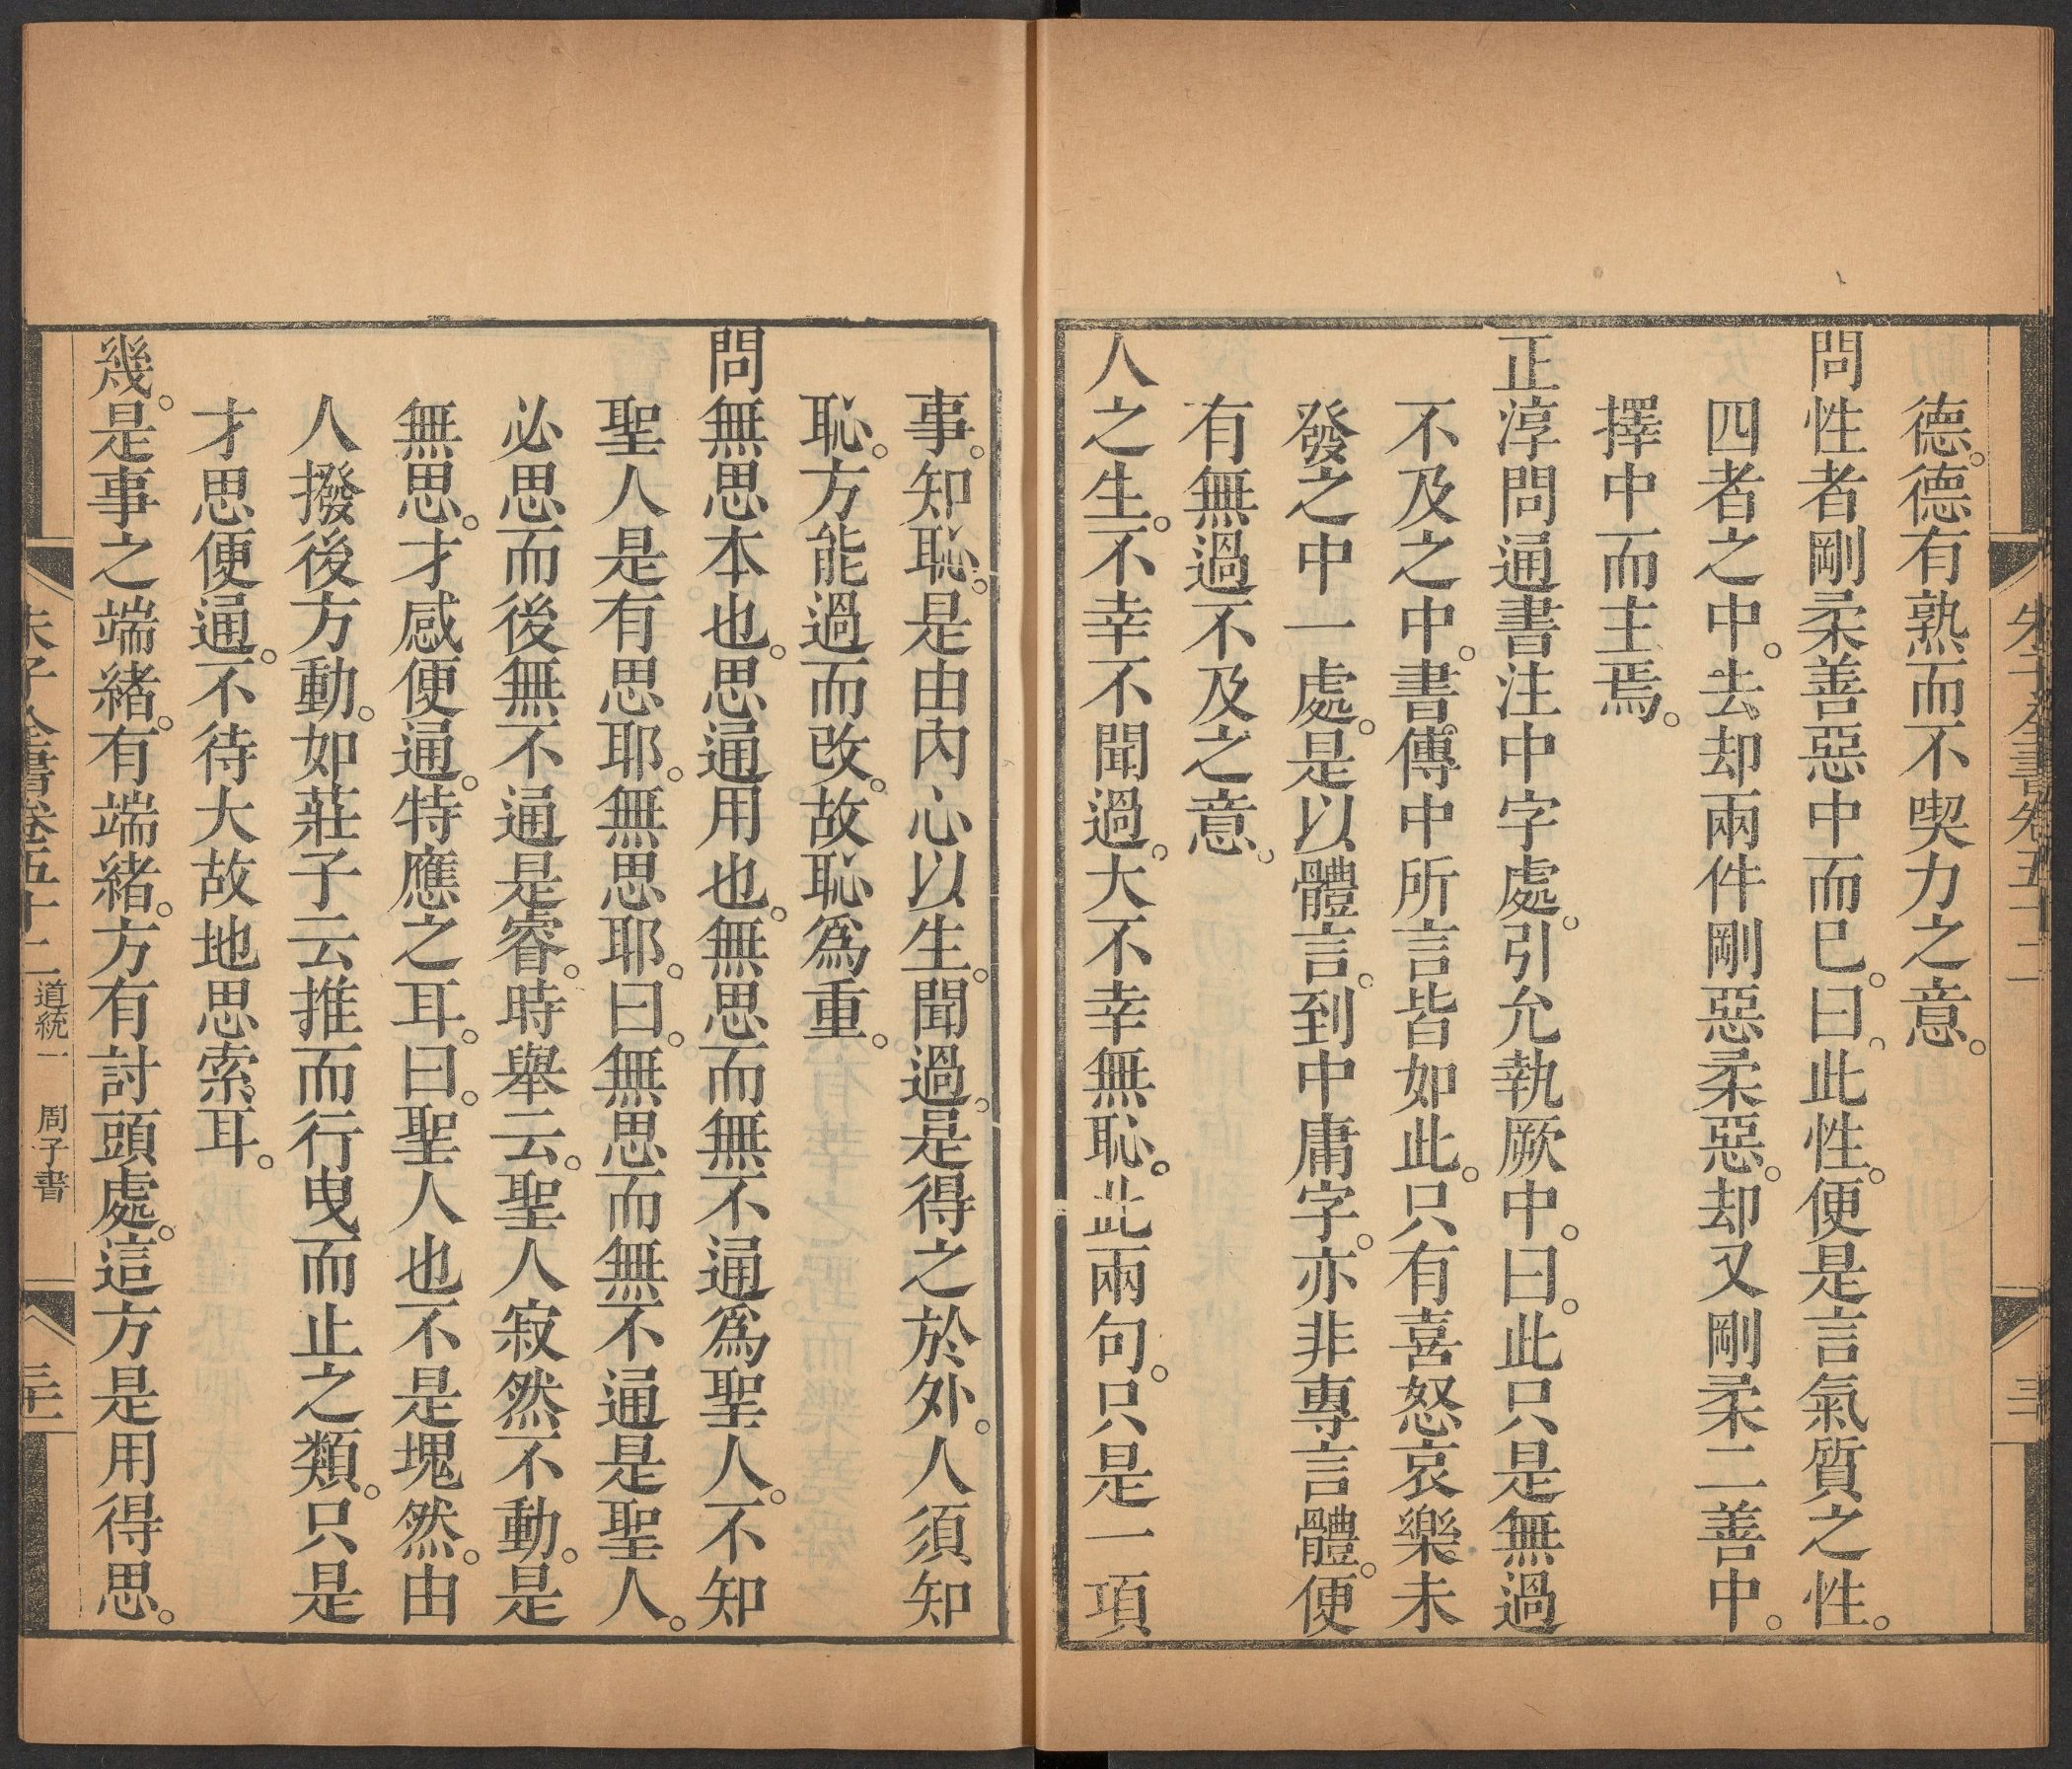 朱子全書卷五十二
德。德有熟而不喫力之意。
問性者剛柔善惡中而巳。曰。此性。便是言氣質之性。
四者之中。去却兩件剛惡柔惡。却又剛柔二善中。
擇中而主焉。
正淳問通書注中字處。引允執厥中。曰。此只是無過
不及之中。書傳中所言皆如此。只有喜怒哀樂未
發之中一處。是以體言。到中庸字。亦非專言體。便
有無過不及之意。
人之生。不幸不聞過。大不幸無恥。此兩句。只是一項
事。知恥。是由內心以生。聞過。是得之於外。人須知
恥。方能過而改。故恥爲重。
問無思本也。思通用也。無思而無不通爲聖人。不知
聖人是有思耶。無思耶。曰。無思而無不通是聖人。
必思而後無不通是睿。時舉云。聖人寂然不動。是
無思。才感便通。特應之耳。曰。聖人也不是塊然。由
人撥後方動。如莊子云推而行曳而止之類。只是
才思便通。不待大故地思索耳。
幾。是事之端緒。有端緒。方有討頭處。這方是用得思。
朱子全書卷五十二 道統一 周子書